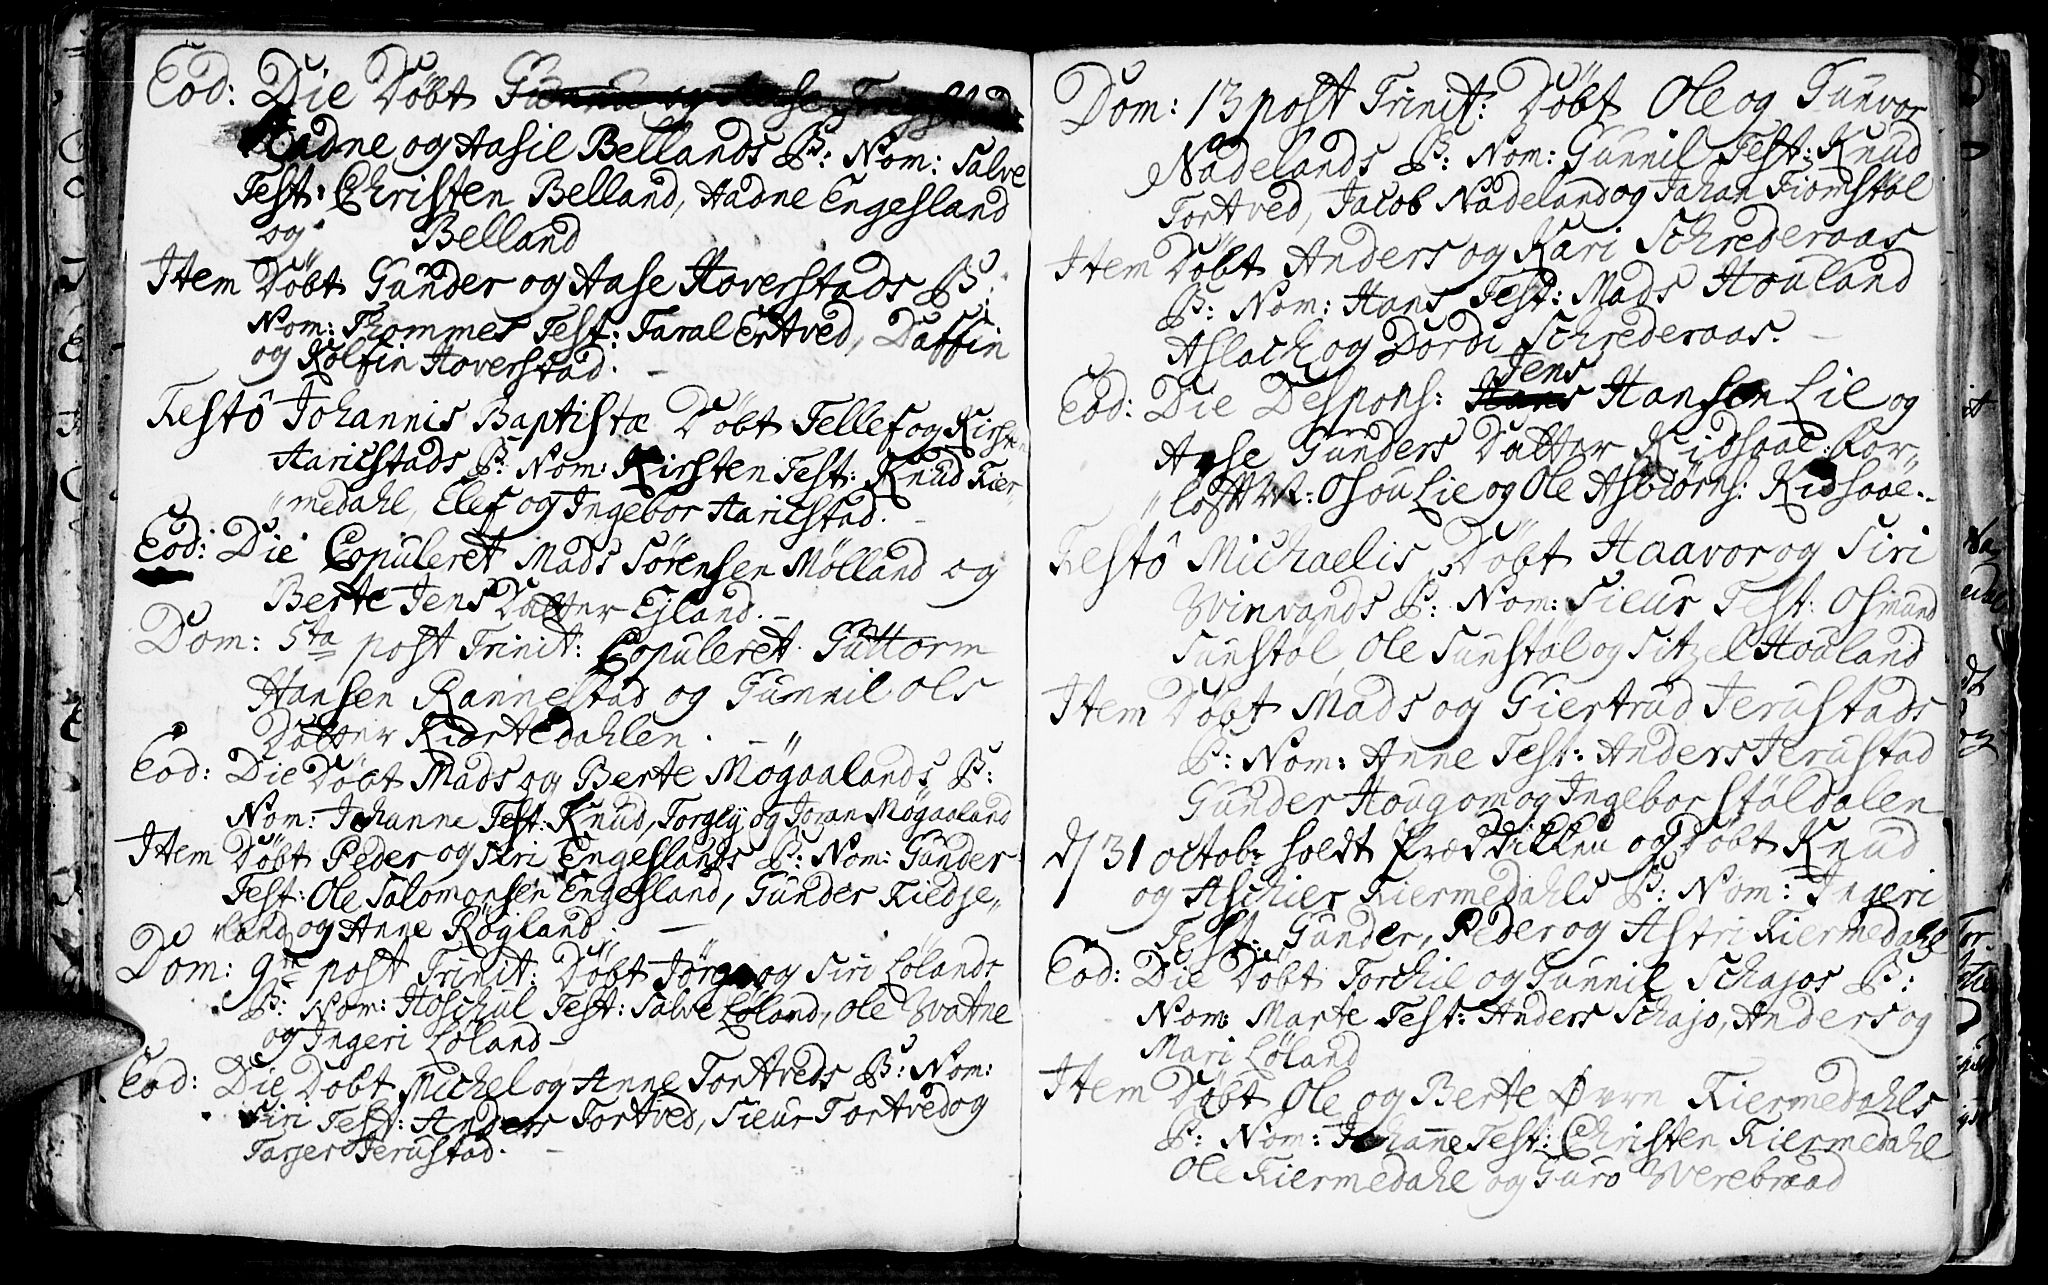 Eod: Die Døbt
Aadne og Aasil Bellands B: Nom: Salve
Test: Christen Belland, Aadne Engesland
og Belland
Item Døbt Gunder og Aase Hoverstads B:
Nom: Thommes Test: Taral Ertved, Daffin
og Rolfin Hoverstad.
Festô Johannis Baptistæ Døbt Tellef og Kirsten
Haricstads B: Nom: Kirsten Test: Knud Kier-
"medahl, Elef og Ingebor Haricstad.
Eod: Die Copuleret Mads Sørensen Mølland og
Berte Jens Datter Ejland.
Dom: 5ta post Trinit: Copuleret Guttorm
Hansen Rannestad og Gunnil Ols
Datter Kiortedahlen.
Eod: Die Døbt Mads og Berte Møgaalands B:
Nom: Johanne Test: Knud, Torgly og Joran Møgaaland
Item Døbt Peder og Siri Engeslands B: Nom: Gunder
Test: Ole Salomonsen Engesland, Gunder Kiedse„
"land og Anne Røgland.
Dom: 9na post Trinit: Døbt Jørgen og Siri Lølands
B: Nom: Hoschul Test: Salve Løland, Ole Watne
og Ingeri Løland
Eod: Die Døbt Michel og Anne Tortveds B: Nom:
Siri Test: Anders Tortved, Sieur Tortved og
Tarjer Jerustad.
Dom: 13 post Trinit: Døbt Ole og Gunvor
Nadelands B: Nom: Gunnil Test: Knud
Tortved, Jacob Nadeland og Johan Fiomstøl
Item Døbt Anders og Kari Schrederaas
B: Nom: Hans Test: Mads Houland
Aslach og Dordi Schrederaas.
Jens
Eod: Die Despons: Hans Hansen Lie og
Aase Gunders Datter Kidsaae. For„
"loft W: Osou Lie og Ole Asbiørns: Kidsaae.
Festô Michaelis Døbt Haavor og Siri
Winvands B: Nom: Sieur Test: Osmund
Sunstøl, Ole Sunstøl og Sitzel Houland
Item Døbt Mads og Giertrud Jerustads
B: Nom: Anne Test: Anders Jerustad
Gunder Hougom og Ingebor Støldalen
d/31 octobr holdt Præddikken og Døbt Knud
og Aschier Kiermedahls B: Nom: Ingeri
Test: Gunder, Peder og Astri Kiermedahl
Eod: Die Døbt Torchil og Gunnil Schajos B:
Nom: Marte Test: Anders Schajo, Anders og
Mari Løland
Item Døbt Ole og Berte Øvre Kiermedahls
B: Nom: Johanne Test: Christen Kiermedahl
Ole Kiermedahl og Guro Werebraad